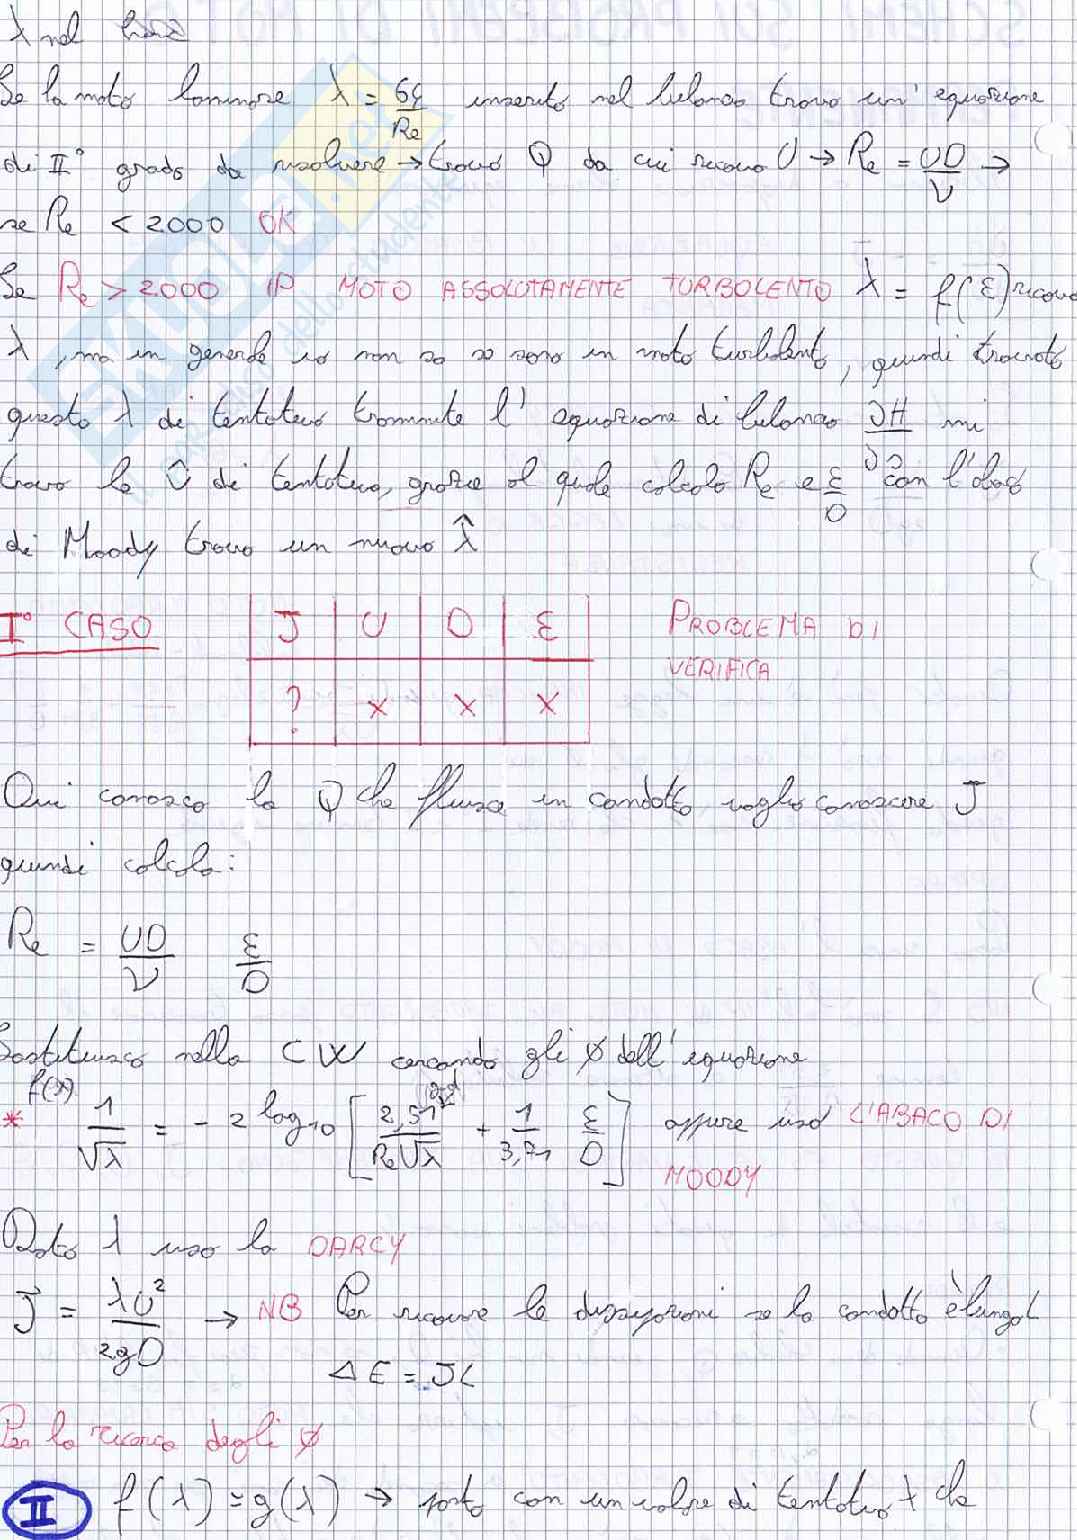 λ nel
Se ho moto laminare λ = 64/Re inserito nel bilancio trovo un' equazione
di II° grado da risolvere → trovo Q da cui ricavo U → Re = UD/ν →
se Re < 2000 OK
Se Re > 2000 IP MOTO ASSOLUTAMENTE TURBOLENTO λ = f(ε) ricavo
λ, ma in generale io non so se sono in moto turbolento, quindi trovato
questo λ di tentativo tramite l' equazione di bilancio ∂H mi
trovo la U di tentativo, grazie al quale calcolo Re e ε/D con l'abaco
di Moody trovo un nuovo λ̂
I° CASO J U D ε PROBLEMA DI
VERIFICA
? x x x
Qui conosco la Q che fluisce in condotto, voglio conoscere J
quindi calcolo:
Re = UD/ν ε/D
Sostituisco nella CW cercando gli ∅ dell' equazione
f(λ)
* 1/√λ = - 2 log10 [2,51/Re√λ + 1/3,71 ε/D] oppure uso L'ABACO DI
MOODY
Dato λ uso la DARCY
J = λU²/2gD → NB Per ricavare le dissipazioni se la condotta è lunga L
ΔE = JL
Per la ricerca degli ∅
II f(λ) = g(λ) → parto con un valore di tentativo λ che